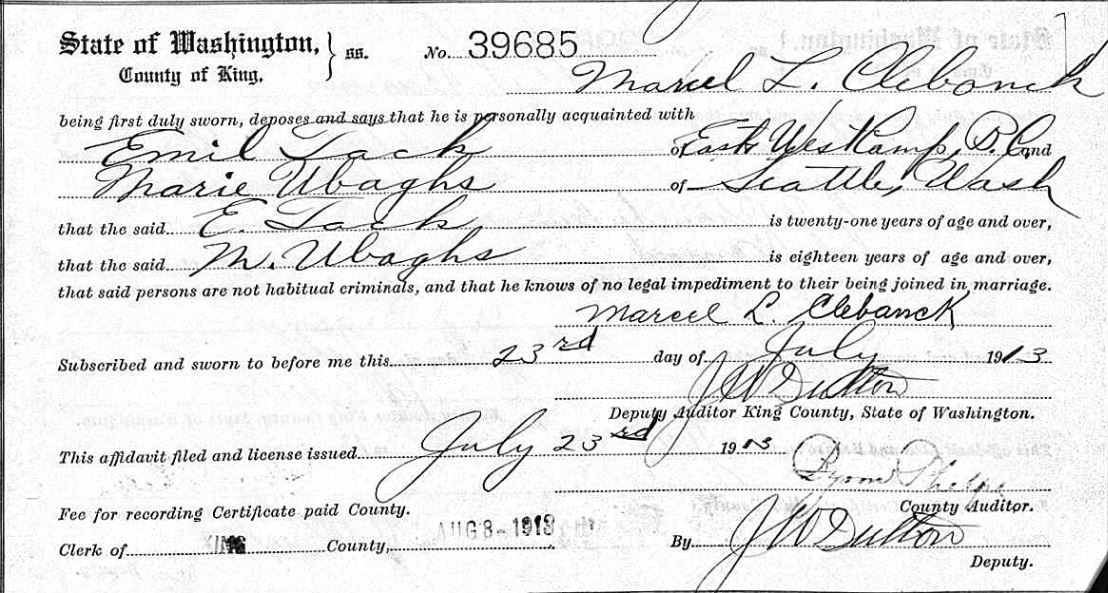 State of Washington, } ss. No. 39685
County of King,
Marcel L. Clebanck
being first duly sworn, deposes and says that he is personally acquainted with
Emil Tack of East Westkamp, B.C. and
Marie Ubaghs of Seattle, Wash
that the said E. Tack is twenty-one years of age and over,
that the said M. Ubaghs is eighteen years of age and over,
that said persons are not habitual criminals, and that he knows of no legal impediment to their being joined in marriage.
Marcel L. Clebanck
Subscribed and sworn to before me this 23rd day of July 1913
J W Dutton
Deputy Auditor King County, State of Washington.
This affidavit filed and license issued July 23rd 1913
Byron Phelps
Fee for recording Certificate paid County. County Auditor.
Clerk of KING County, AUG 8-1913 By J W Dutton
Deputy.